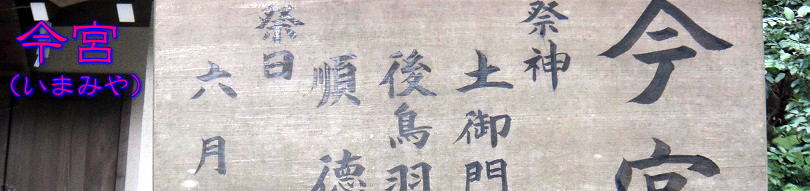 今宮
(いまみや)
今宮
祭神
土御門
後鳥羽
順徳
祭日
六月